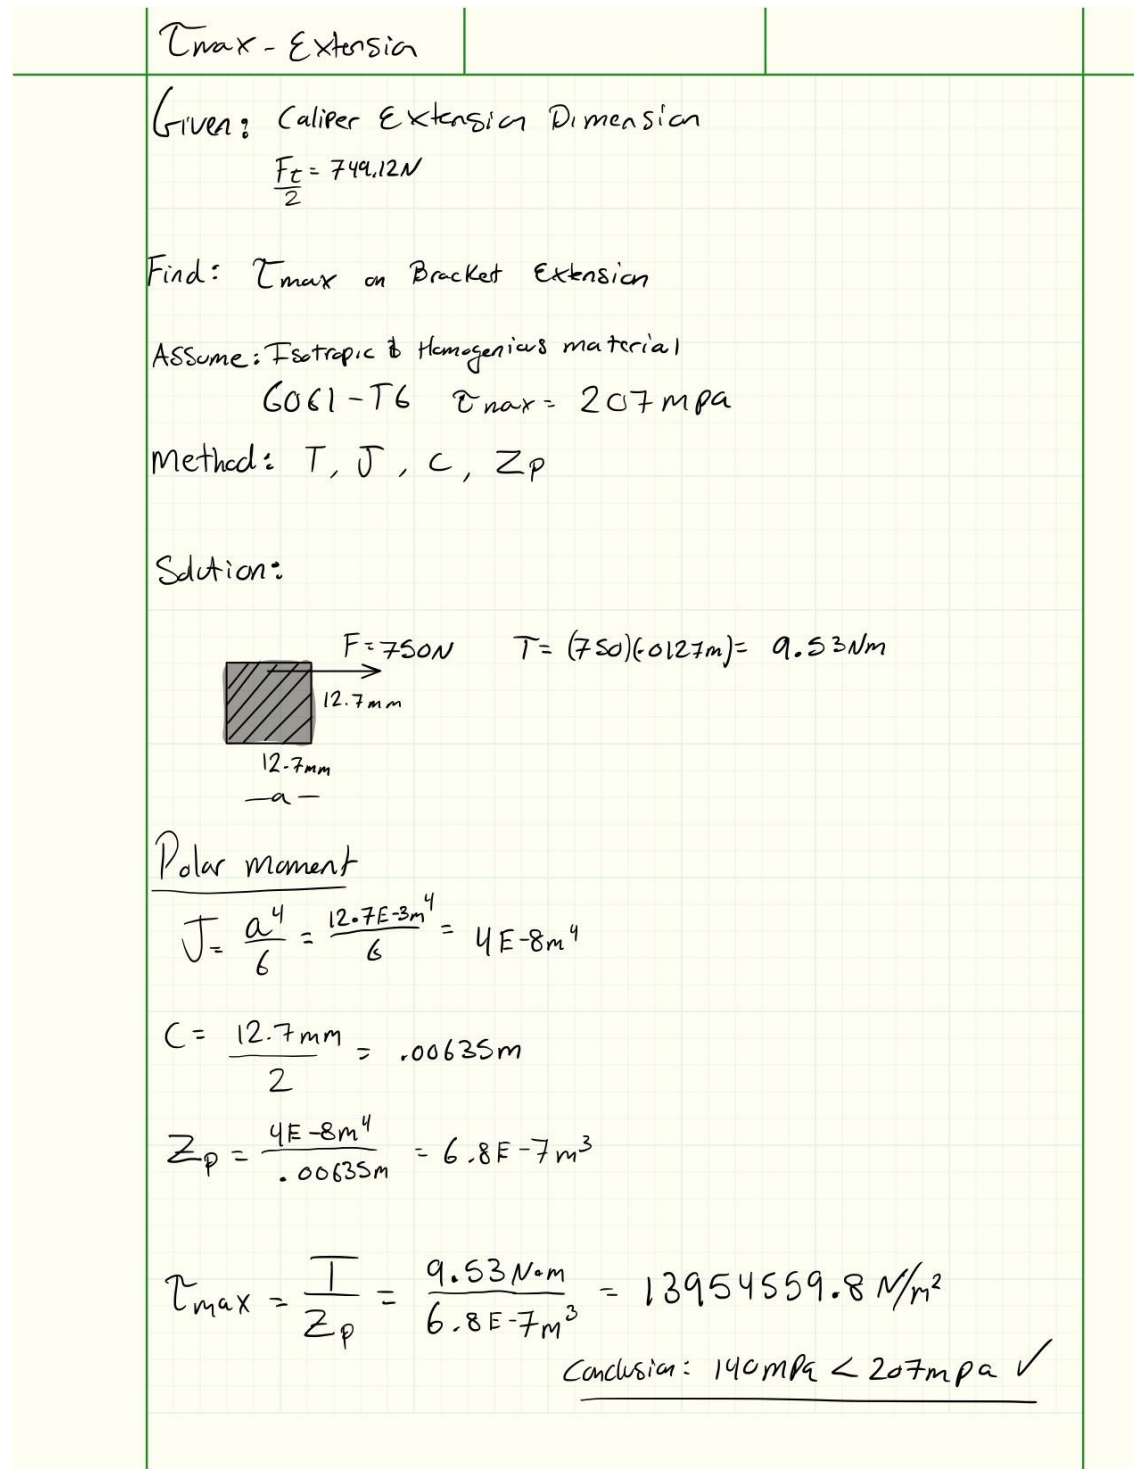 τmax - Extension
Given: Caliper Extension Dimension
Ft/2 = 749.12N
Find: τmax on Bracket Extension
Assume: Isotropic & Homogenious material
6061-T6 τmax= 207mpa
Method: T, J, C, Zp
Solution:
F=750N T= (750)(.0127m)= 9.53Nm
12.7mm
12.7mm
-a-
Polar moment
J= a⁴/6 = 12.7E-3m⁴/6 = 4E-8m⁴
C= 12.7mm/2 = .00635m
Zp = 4E-8m⁴/.00635m = 6.8E-7m³
τmax = T/Zp = 9.53N·m/6.8E-7m³ = 13954559.8 N/m²
Conclusion: 140mPa < 207mpa ✓